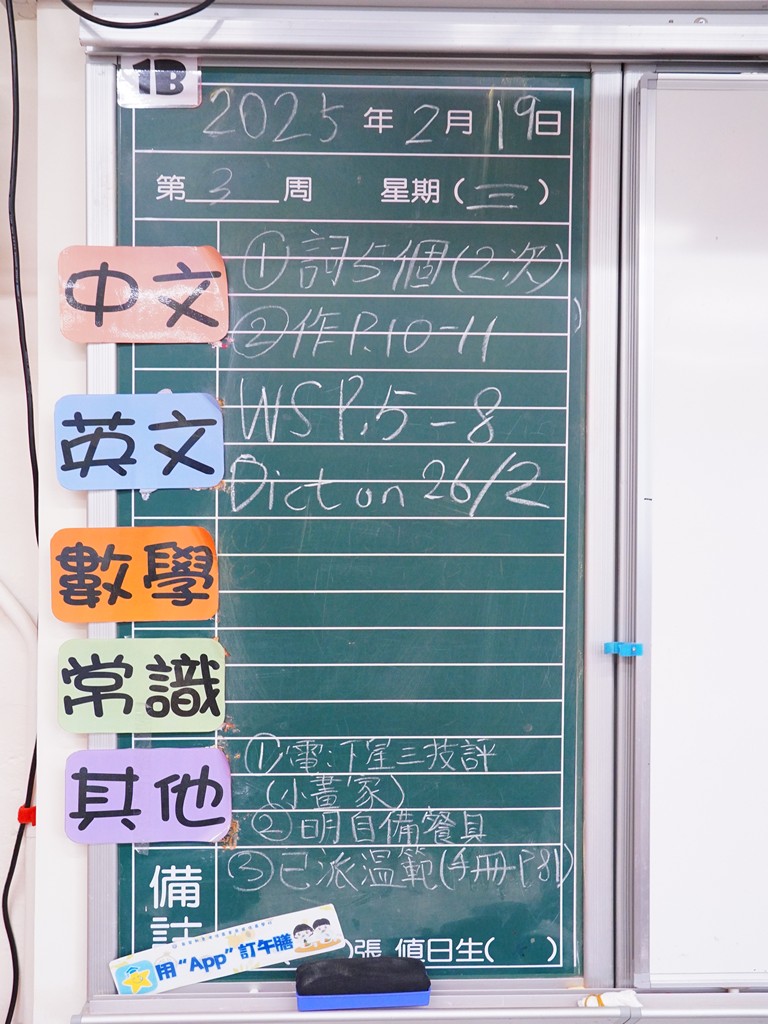 1B
2025 年 2 月 19 日
第 3 周 星期(三)
中文
①詞5個(2次)
②作P.10-11
英文
WS P.5-8
Dict on 26/2
數學
常識
其他
①電:下星三技評
(小畫家)
②明自備餐具
③已派温範(手冊P81)
備註
用“App”訂午膳
( )張 值日生( )